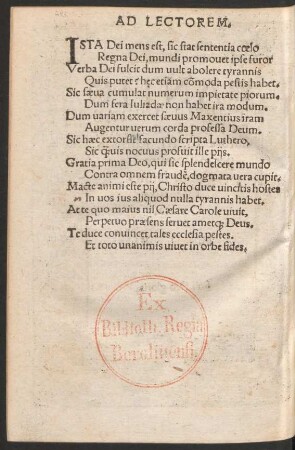 AD LECTOREM.
ISTA Dei mens est, sic stat sententia cœlo
Regna Dei, mundi promouet ipse furor
Verba Dei fulcit dum vult abolere tyrannis
Quis putet ĩ hęc etiãm cõmoda pestis habet.
Sic sæua cumulat numerum impietate piorum.
Dum fera dæ non habet ira modum.
Dum variam exercet sæuus Maxentius iram
Augentur uerum corda professa Deum.
Sic hæc extorsit facundo scripta Luthero,
Sic q̃uis nocuus profuit ille pijs.
Gratia prima Deo, qui sic splendelcere mundo
Contra omnem fraudẽ, dogmata vera cupit.
Macte animi este pij, Christo duce vinctis hostes
In uos ius aliquod nulla tyrannis habet.
At te quo maius nil Cæsare Carole uiuit,
Perpetuo præsens seruet ametq; Deus.
Te duce conuincet tales ecclesia pestes.
Et toto unanimis uiuet in orbe fides.
Ex
Biblioth. Regia
Berolinensi.